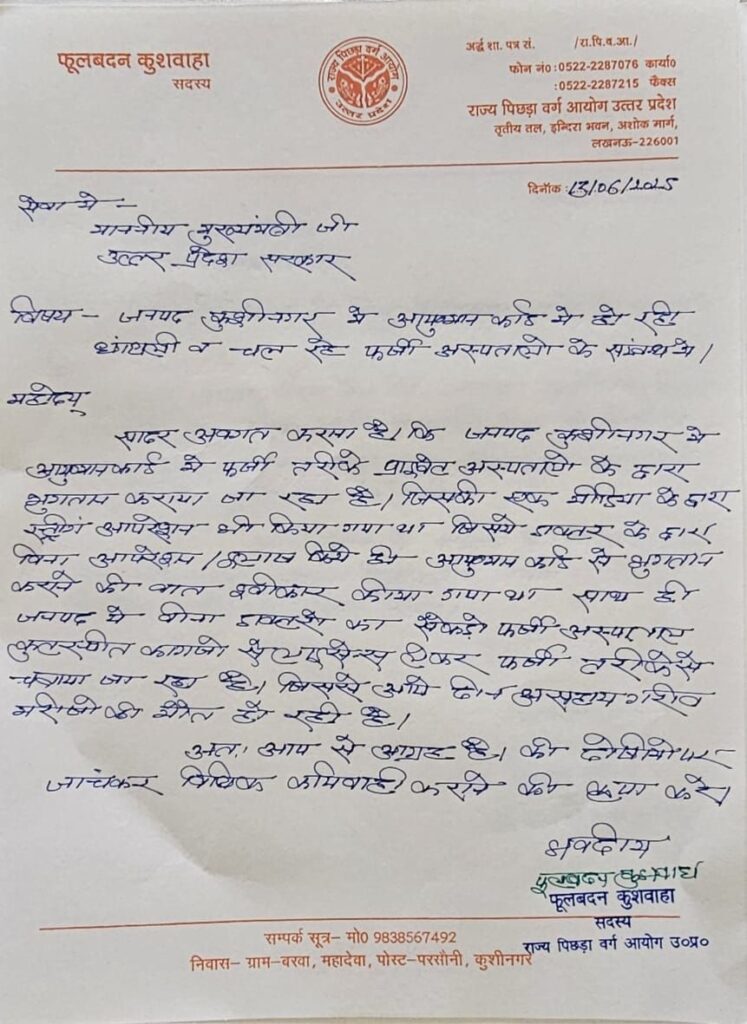 फूलबदन कुशवाहा
सदस्य
राज्य पिछड़ा वर्ग आयोग
उत्तर प्रदेश
अर्द्ध शा. पत्र सं. /रा.पि.व.आ./
फोन नं0 :0522-2287076 कार्या0
:0522-2287215 फैक्स
राज्य पिछड़ा वर्ग आयोग उत्तर प्रदेश
तृतीय तल, इन्दिरा भवन, अशोक मार्ग,
लखनऊ-226001
दिनॉक :13/06/2025
सेवा मे :-
माननीय मुख्यमंत्री जी
उत्तर प्रदेश सरकार
विषय - जनपद कुशीनगर मे आयुष्मान कार्ड मे हो रही
धांधली व चल रहे फर्जी अस्पतालो के सम्बंध मे।
महोदय्
सादर अवगत कराना है। कि जनपद कुशीनगर मे
आयुष्मान कार्ड मे फर्जी तरीके प्राइवेट अस्पतालो के द्वारा
भुगतान कराया जा रहा है। जिसकी एक मीडिया के द्वारा
आपरेशन भी किया गया था जिसमे डाक्टर के द्वारा
बिना आपरेशन /इलाज किये ही आयुष्मान कार्ड से भुगतान
कराने की बात स्वीकार कीया गया था साथ ही
जनपद मे बीना डाक्टरो का सैकड़ो फर्जी अस्पताल
कागजो लेकर फर्जी तरीके से
चलाया जा रहा है। जिससे आये दीन असहाय गरीब
मरीजो की मौत हो रही है।
अतः आप से आग्रह है। की दोषियो पर
जाचंकर विधिक कार्यवाही कराने की कृपा करे।
भवदीय
फूलबदन कुशवाहा
फूलबदन कुशवाहा
सदस्य
राज्य पिछड़ा वर्ग आयोग उ०प्र०
सम्पर्क सूत्र– मो0 9838567492
निवास– ग्राम-बरवा, महादेवा, पोस्ट-परसौनी, कुशीनगर